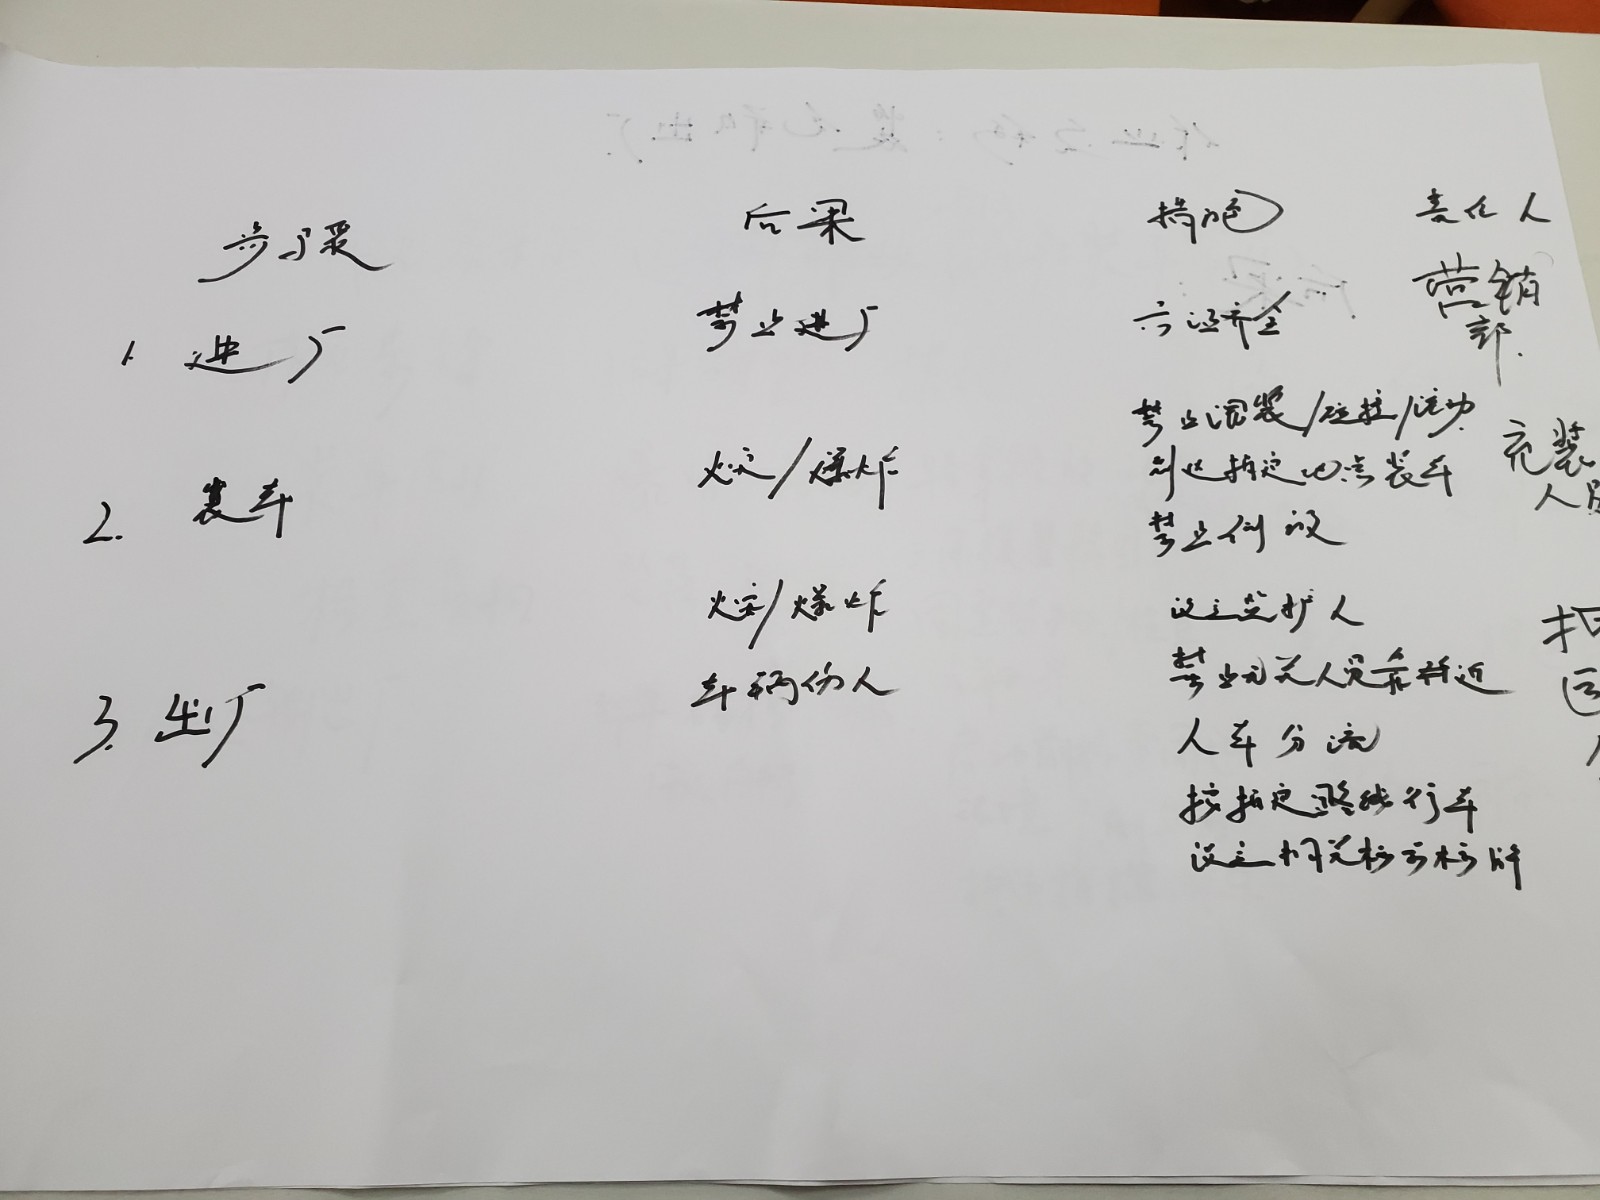 步骤 后果 措施 责任人
1. 进厂 禁止进厂 六证齐全 营销
部.
2. 装车 火灾/爆炸 禁止混装/碰撞/滚动
到达指定地点装车 充装
禁止倒 人员
3. 出厂 火灾/爆炸 设立监护人
车辆伤人 禁止无关人员靠近
人车分流
按指定路线行车
设立相关标示标牌